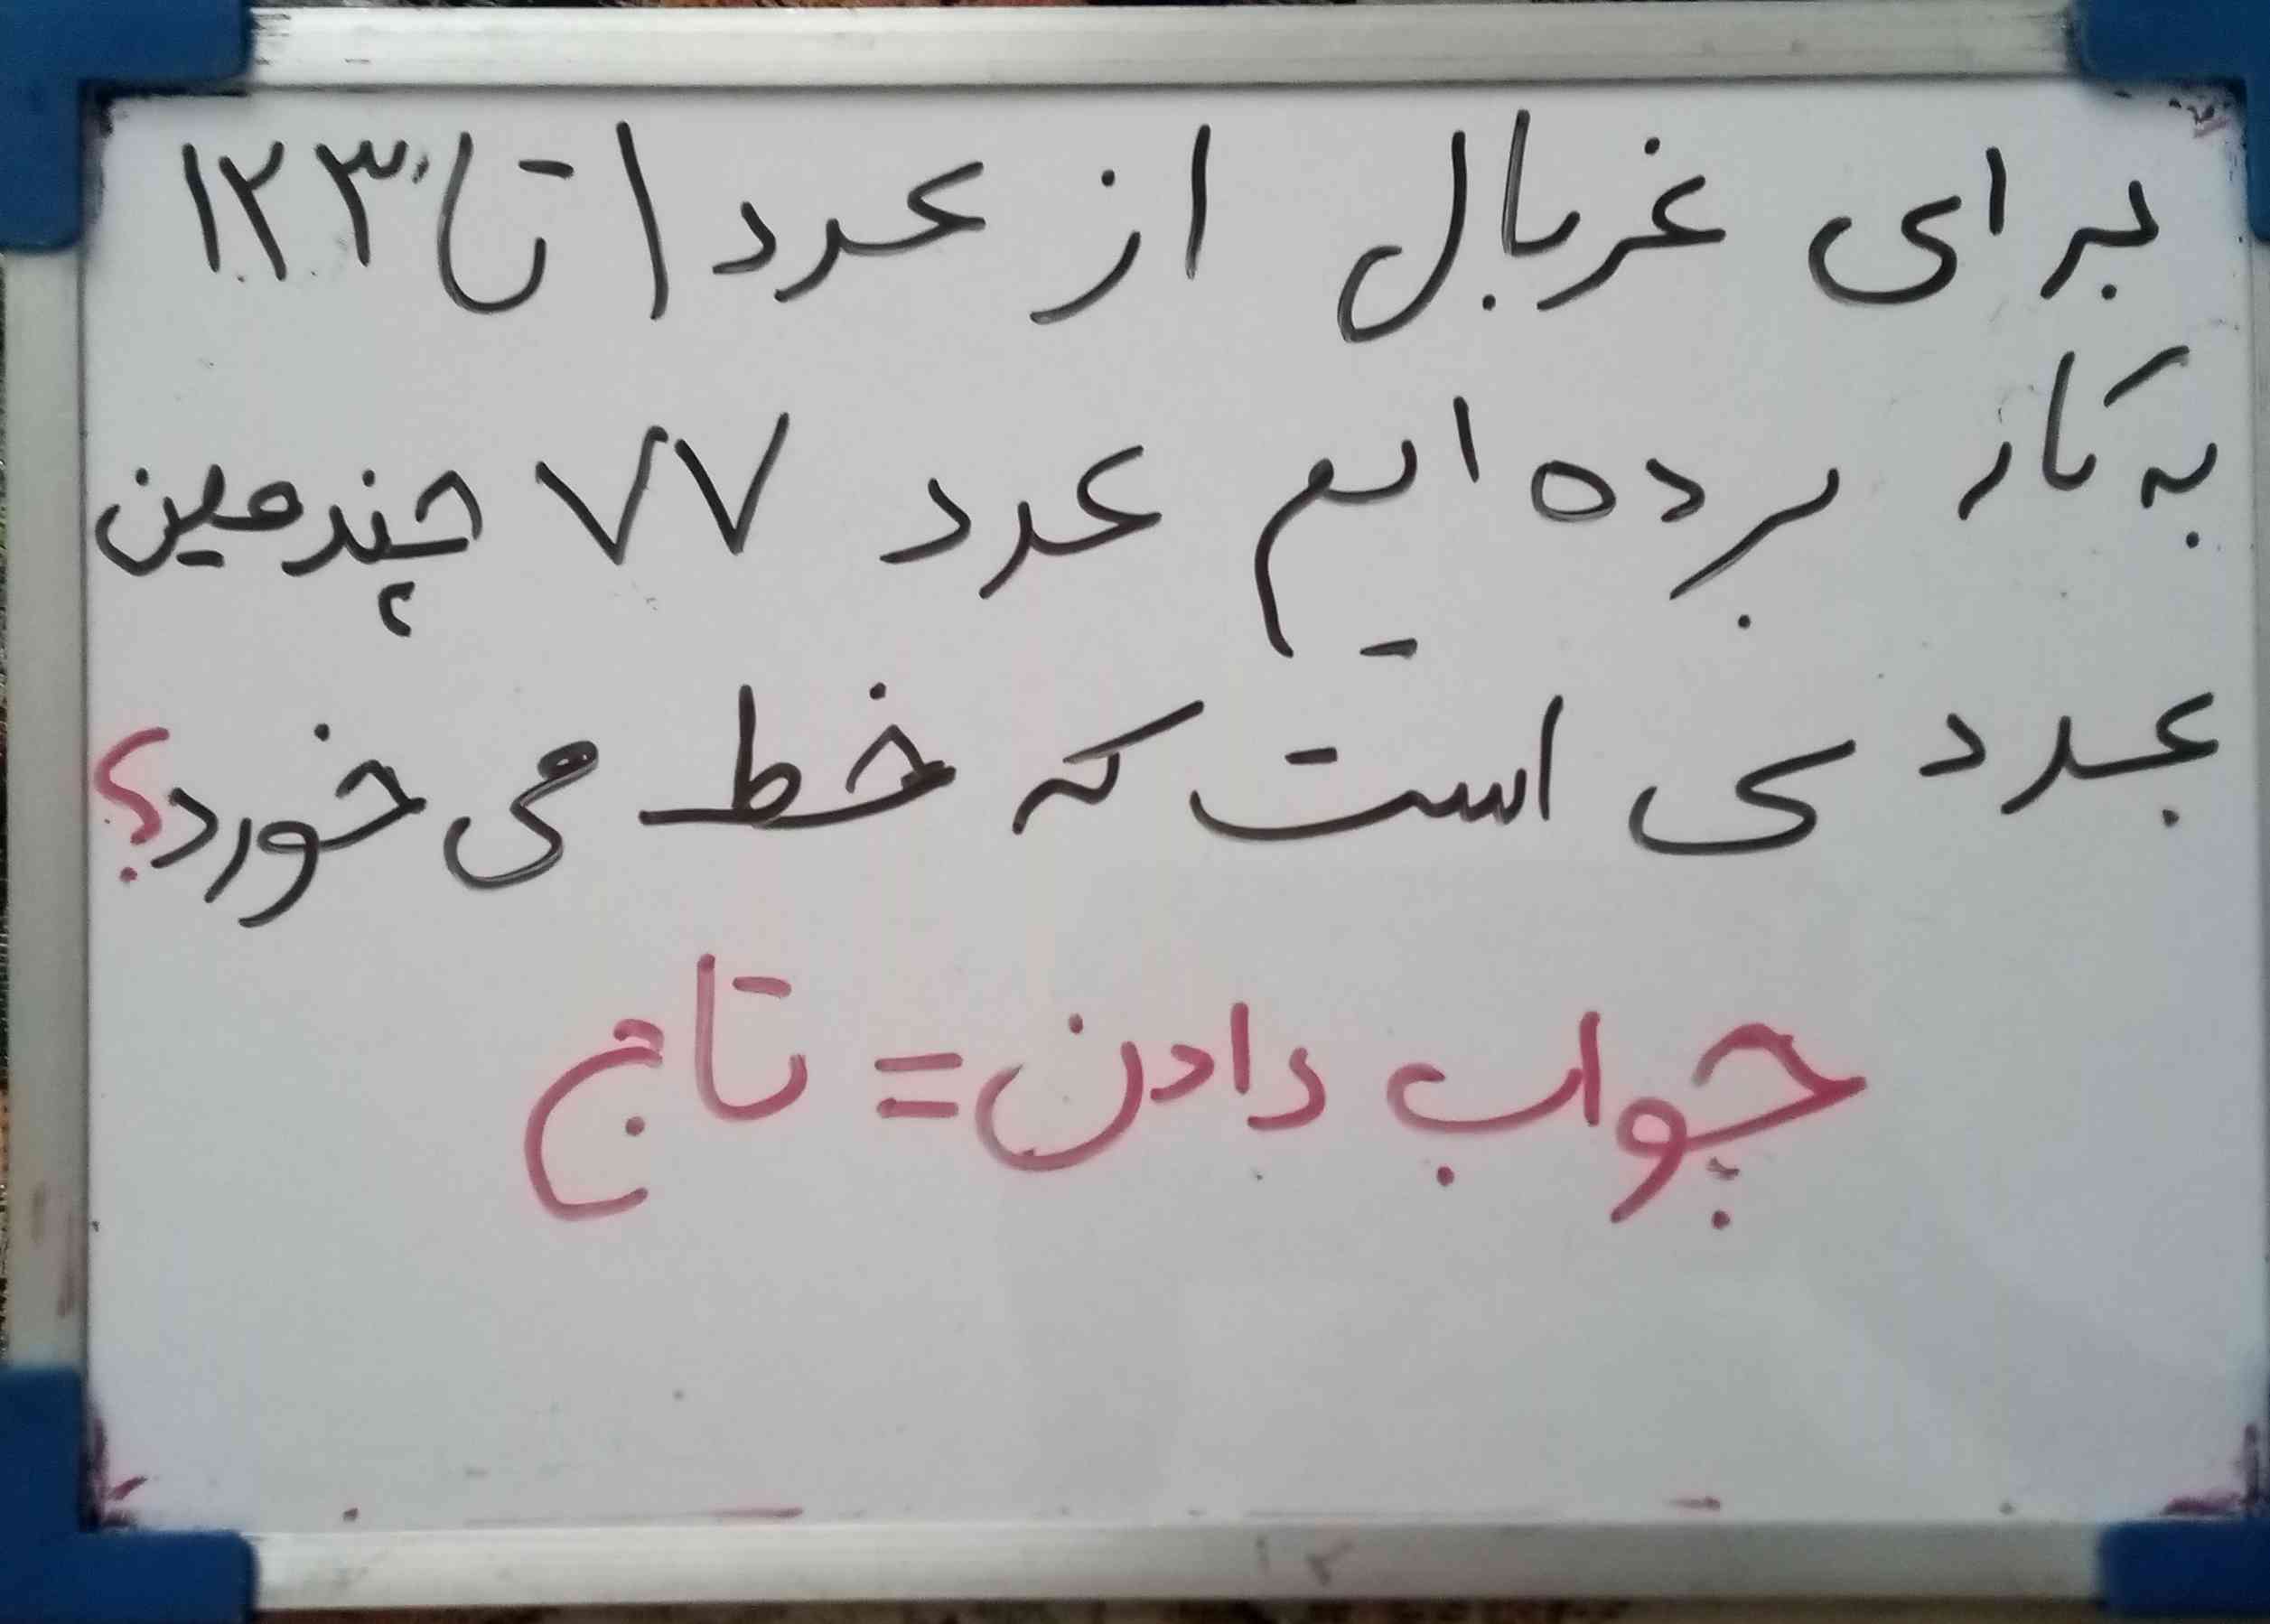 برای غربال از عدد ۱ تا ۱۲۳
به کار برده ایم عدد ۷۷ چندمین
عددی است که خط می خورد؟
جواب دادن = تاج